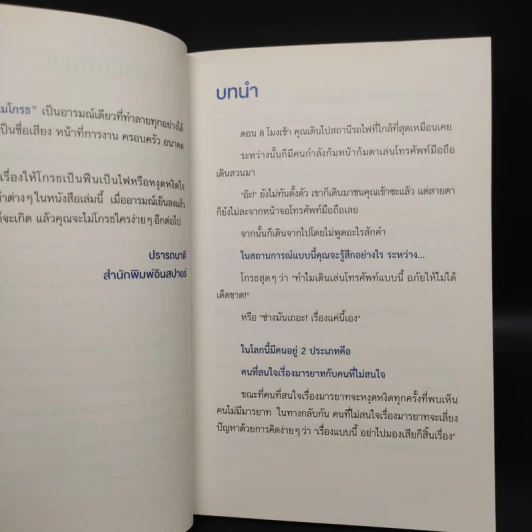 มโกรธ" เป็นอารมณ์เดียวที่ทำลายทุกอย่างได้
เป็นชื่อเสียง หน้าที่การงาน ครอบครัว อนาคต
เรื่องให้โกรธเป็นฟืนเป็นไฟหรือหงุดหงิดใจ
ต่างๆ ในหนังสือเล่มนี้ เมื่ออารมณ์เย็นลงแล้ว
จะเกิด แล้วคุณจะไม่โกรธใครง่ายๆ อีกต่อไป
ปรารถนาดี
สำนักพิมพ์อินสปายร์
บทนำ
ตอน 8 โมงเช้า คุณเดินไปสถานีรถไฟที่ใกล้ที่สุดเหมือนเคย
ระหว่างนั้นก็มีคนกำลังก้มหน้าก้มตาเล่นโทรศัพท์มือถือ
เดินสวนมา
"อ๊ะ!" ยังไม่ทันตั้งตัว เขาก็เดินมาชนคุณเข้าซะแล้ว แต่สายตา
ก็ยังไม่ละจากหน้าจอโทรศัพท์มือถือเลย
จากนั้นก็เดินจากไปโดยไม่พูดอะไรสักคำ
ในสถานการณ์แบบนี้คุณจะรู้สึกอย่างไร ระหว่าง...
โกรธสุดๆ ว่า "ทำไมเดินเล่นโทรศัพท์แบบนี้ อภัยให้ไม่ได้
เด็ดขาด!"
หรือ "ช่างมันเถอะ! เรื่องแค่นี้เอง"
ในโลกนี้มีคนอยู่ 2 ประเภทคือ
คนที่สนใจเรื่องมารยาทกับคนที่ไม่สนใจ
ขณะที่คนที่สนใจเรื่องมารยาทจะหงุดหงิดทุกครั้งที่พบเห็น
คนไม่มีมารยาท ในทางกลับกัน คนที่ไม่สนใจเรื่องมารยาทจะเลี่ยง
ปัญหาด้วยการคิดง่ายๆ ว่า "เรื่องแบบนี้ อย่าไปมองเสียก็สิ้นเรื่อง"